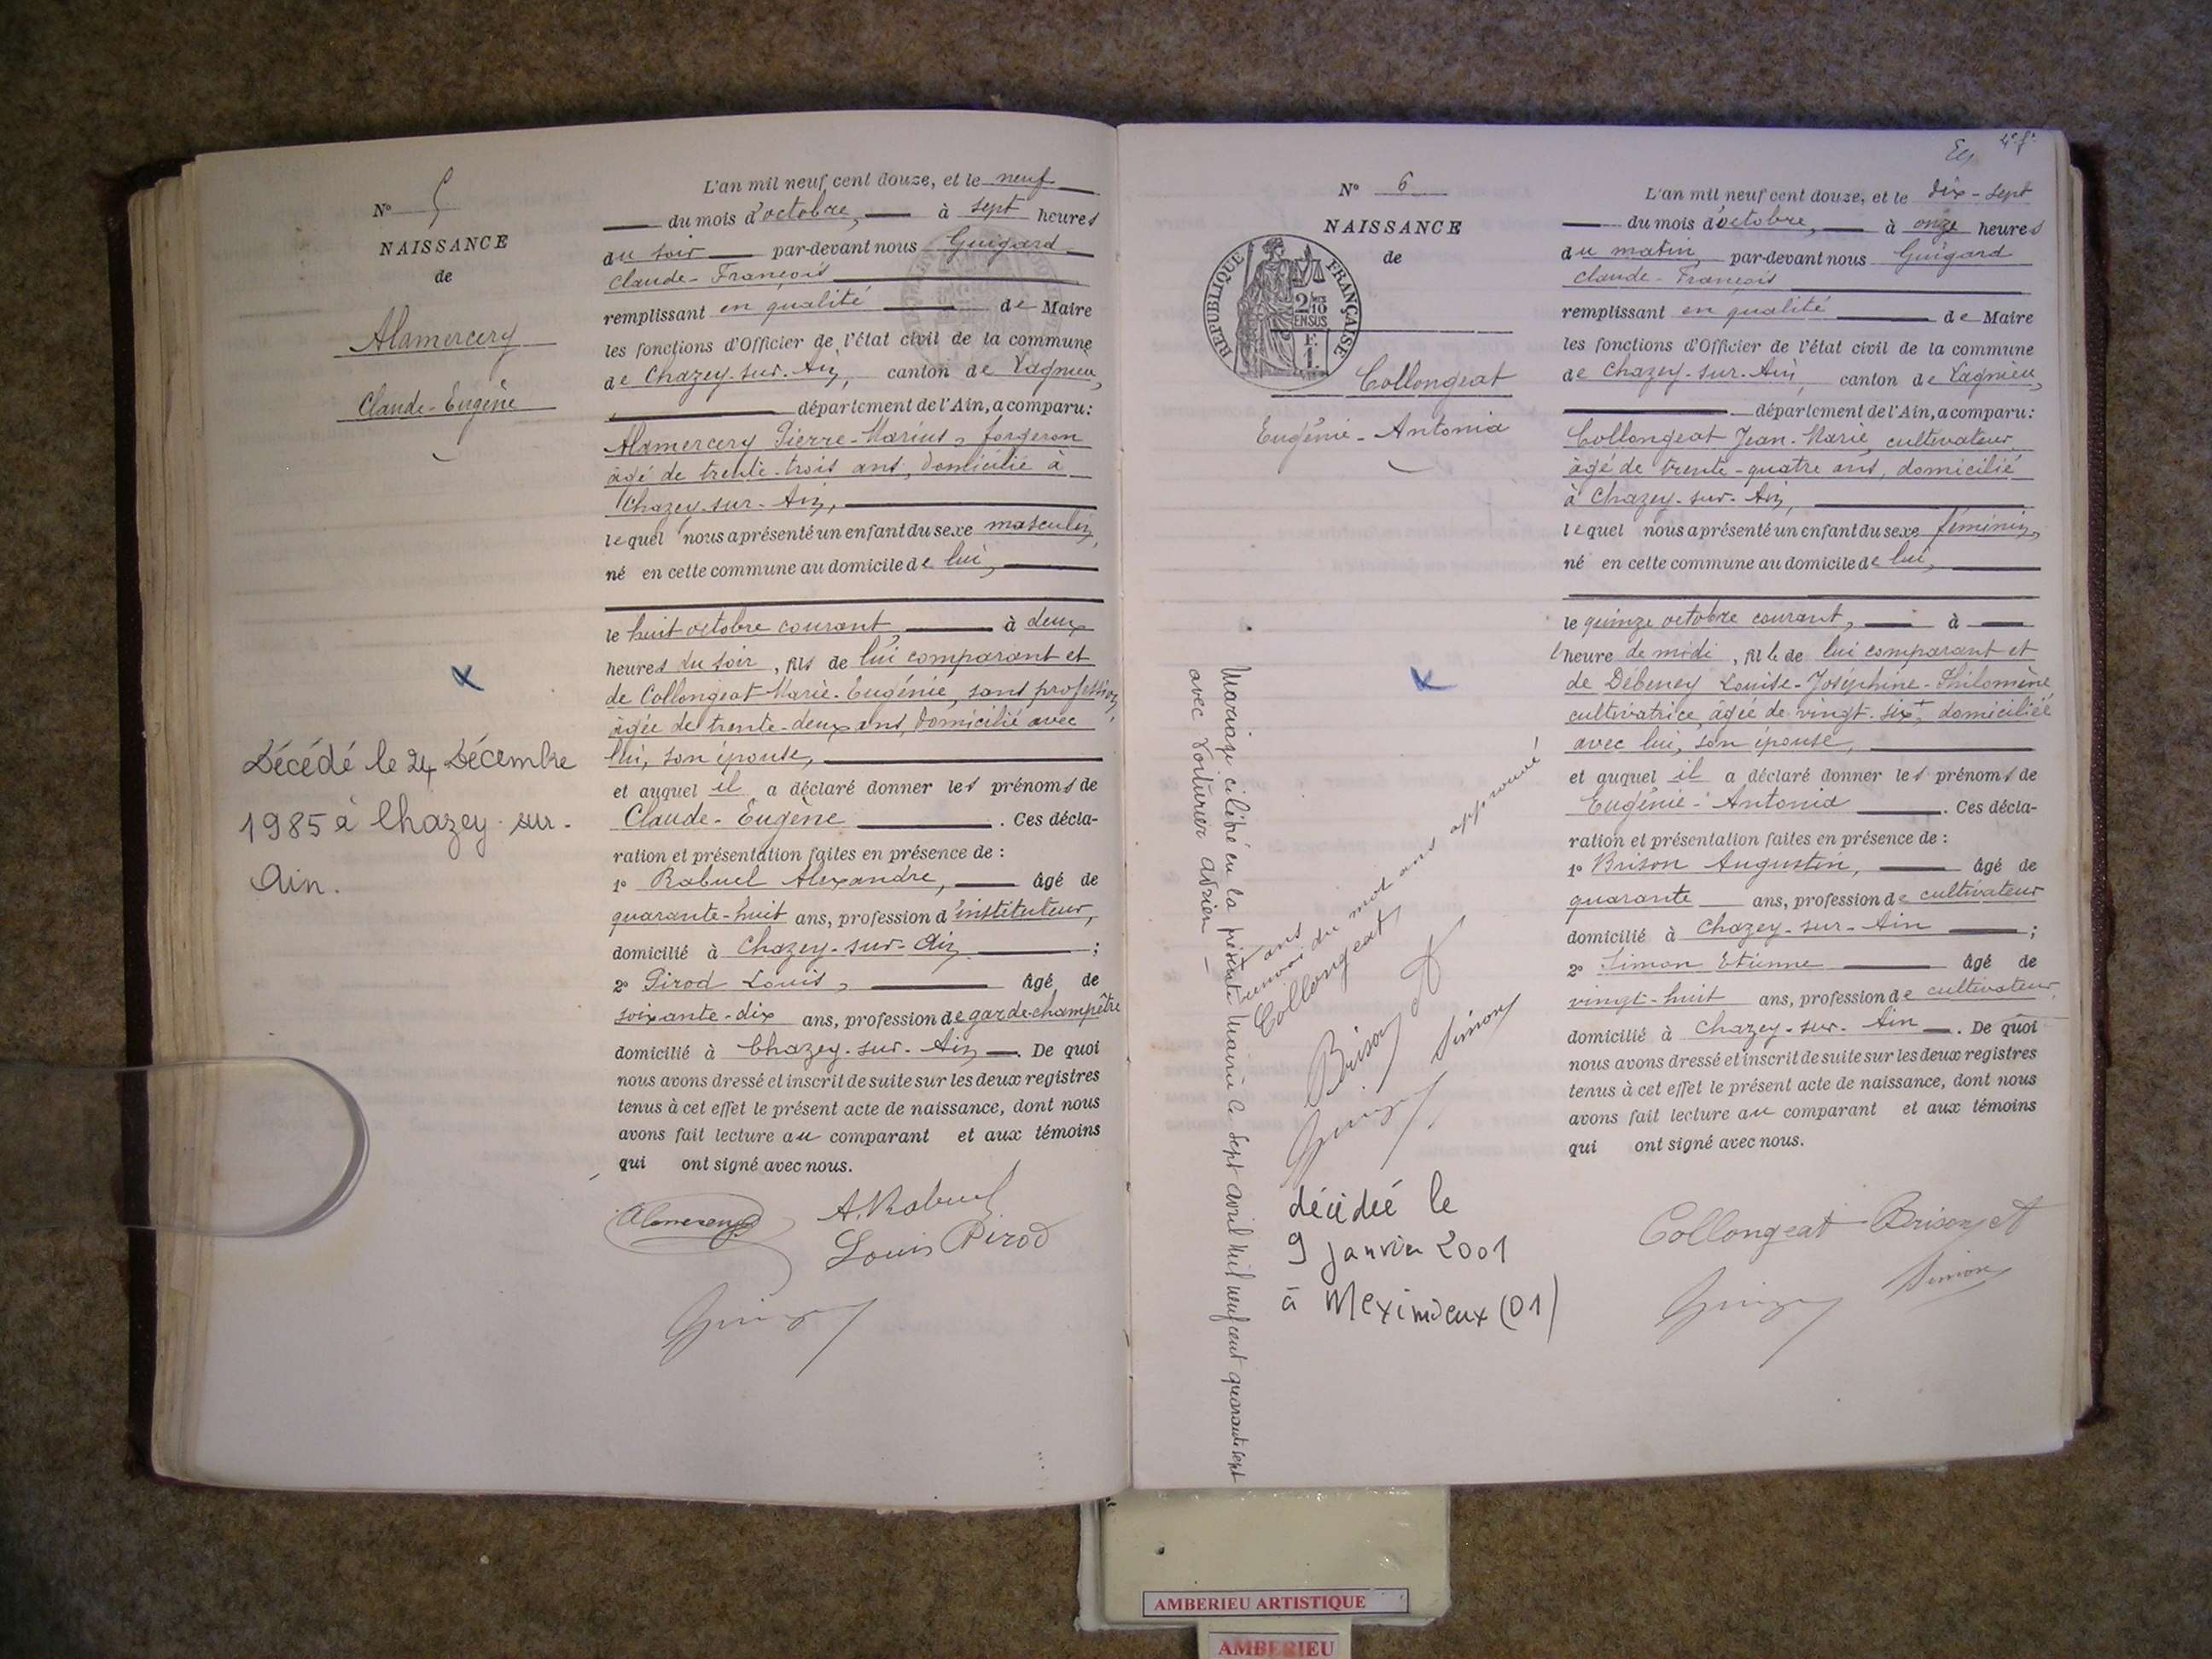 N° 5
NAISSANCE
de
Alamercery
Claude-Eugène
Décédé le 24 Décembre
1985 à Chazey-sur-
Ain.
L'an mil neuf cent douze, et le neuf
du mois d'octobre, à sept heures
du soir par-devant nous Guigard
Claude-François
remplissant en qualité de Maire
les fonctions d'Officier de l'état civil de la commune
de Chazey-sur-Ain, canton de Lagnieu,
département de l'Ain, a comparu:
Alamercery Pierre-Marius, forgeron
âgé de trente-trois ans, domicilié à
Chazey-sur-Ain,
lequel nous a présenté un enfant du sexe masculin,
né en cette commune au domicile de lui,
le huit octobre courant, à deux
heures du soir, fils de lui comparant et
de Collongeat Marie-Eugénie, sans profession,
âgée de trente-deux ans, domicilié avec
lui, son épouse,
et auquel il a déclaré donner les prénoms de
Claude-Eugène. Ces décla-
ration et présentation faites en présence de :
1° Rabuel Alexandre, âgé de
quarante-huit ans, profession d'instituteur,
domicilié à Chazey-sur-Ain ;
2° Pirod Louis, âgé de
soixante-dix ans, profession de garde-champêtre
domicilié à Chazey-sur-Ain. De quoi
nous avons dressé et inscrit de suite sur les deux registres
tenus à cet effet le présent acte de naissance, dont nous
avons fait lecture au comparant et aux témoins
qui ont signé avec nous.
Alamercery A. Rabuel
Louis Pirod
4e f.
N° 6
NAISSANCE
de
RÉPUBLIQUE FRANÇAISE
2/10
EN SUS
F.
1.
Collongeat
Eugénie-Antonia
Mariage célébré en la présente Mairie le sept avril mil neuf cent quarante sept
avec Voiturier Adrien
+ ans
renvoi du mot ans approuvé
Collongeat
Brison A
Simon
décédée le
9 janvier 2001
à Meximieux (01)
L'an mil neuf cent douze, et le dix-sept
du mois d'octobre, à onze heures
du matin, par-devant nous Guigard
Claude-François
remplissant en qualité de Maire
les fonctions d'Officier de l'état civil de la commune
de Chazey-sur-Ain, canton de Lagnieu,
département de l'Ain, a comparu:
Collongeat Jean-Marie, cultivateur
âgé de trente-quatre ans, domicilié
à Chazey-sur-Ain,
lequel nous a présenté un enfant du sexe féminin,
né en cette commune au domicile de lui,
le quinze octobre courant, à
l'heure de midi, fille de lui comparant et
de Débeney Louise-Joséphine-Philomène
cultivatrice, âgée de vingt-six +, domiciliée
avec lui, son épouse,
et auquel il a déclaré donner les prénoms de
Eugénie-Antonia. Ces décla-
ration et présentation faites en présence de :
1° Brison Augustin, âgé de
quarante ans, profession de cultivateur
domicilié à Chazey-sur-Ain ;
2° Simon Etienne âgé de
vingt-huit ans, profession de cultivateur,
domicilié à Chazey-sur-Ain. De quoi
nous avons dressé et inscrit de suite sur les deux registres
tenus à cet effet le présent acte de naissance, dont nous
avons fait lecture au comparant et aux témoins
qui ont signé avec nous.
Collongeat Brison A
Simon
AMBERIEU ARTISTIQUE
AMBERIEU